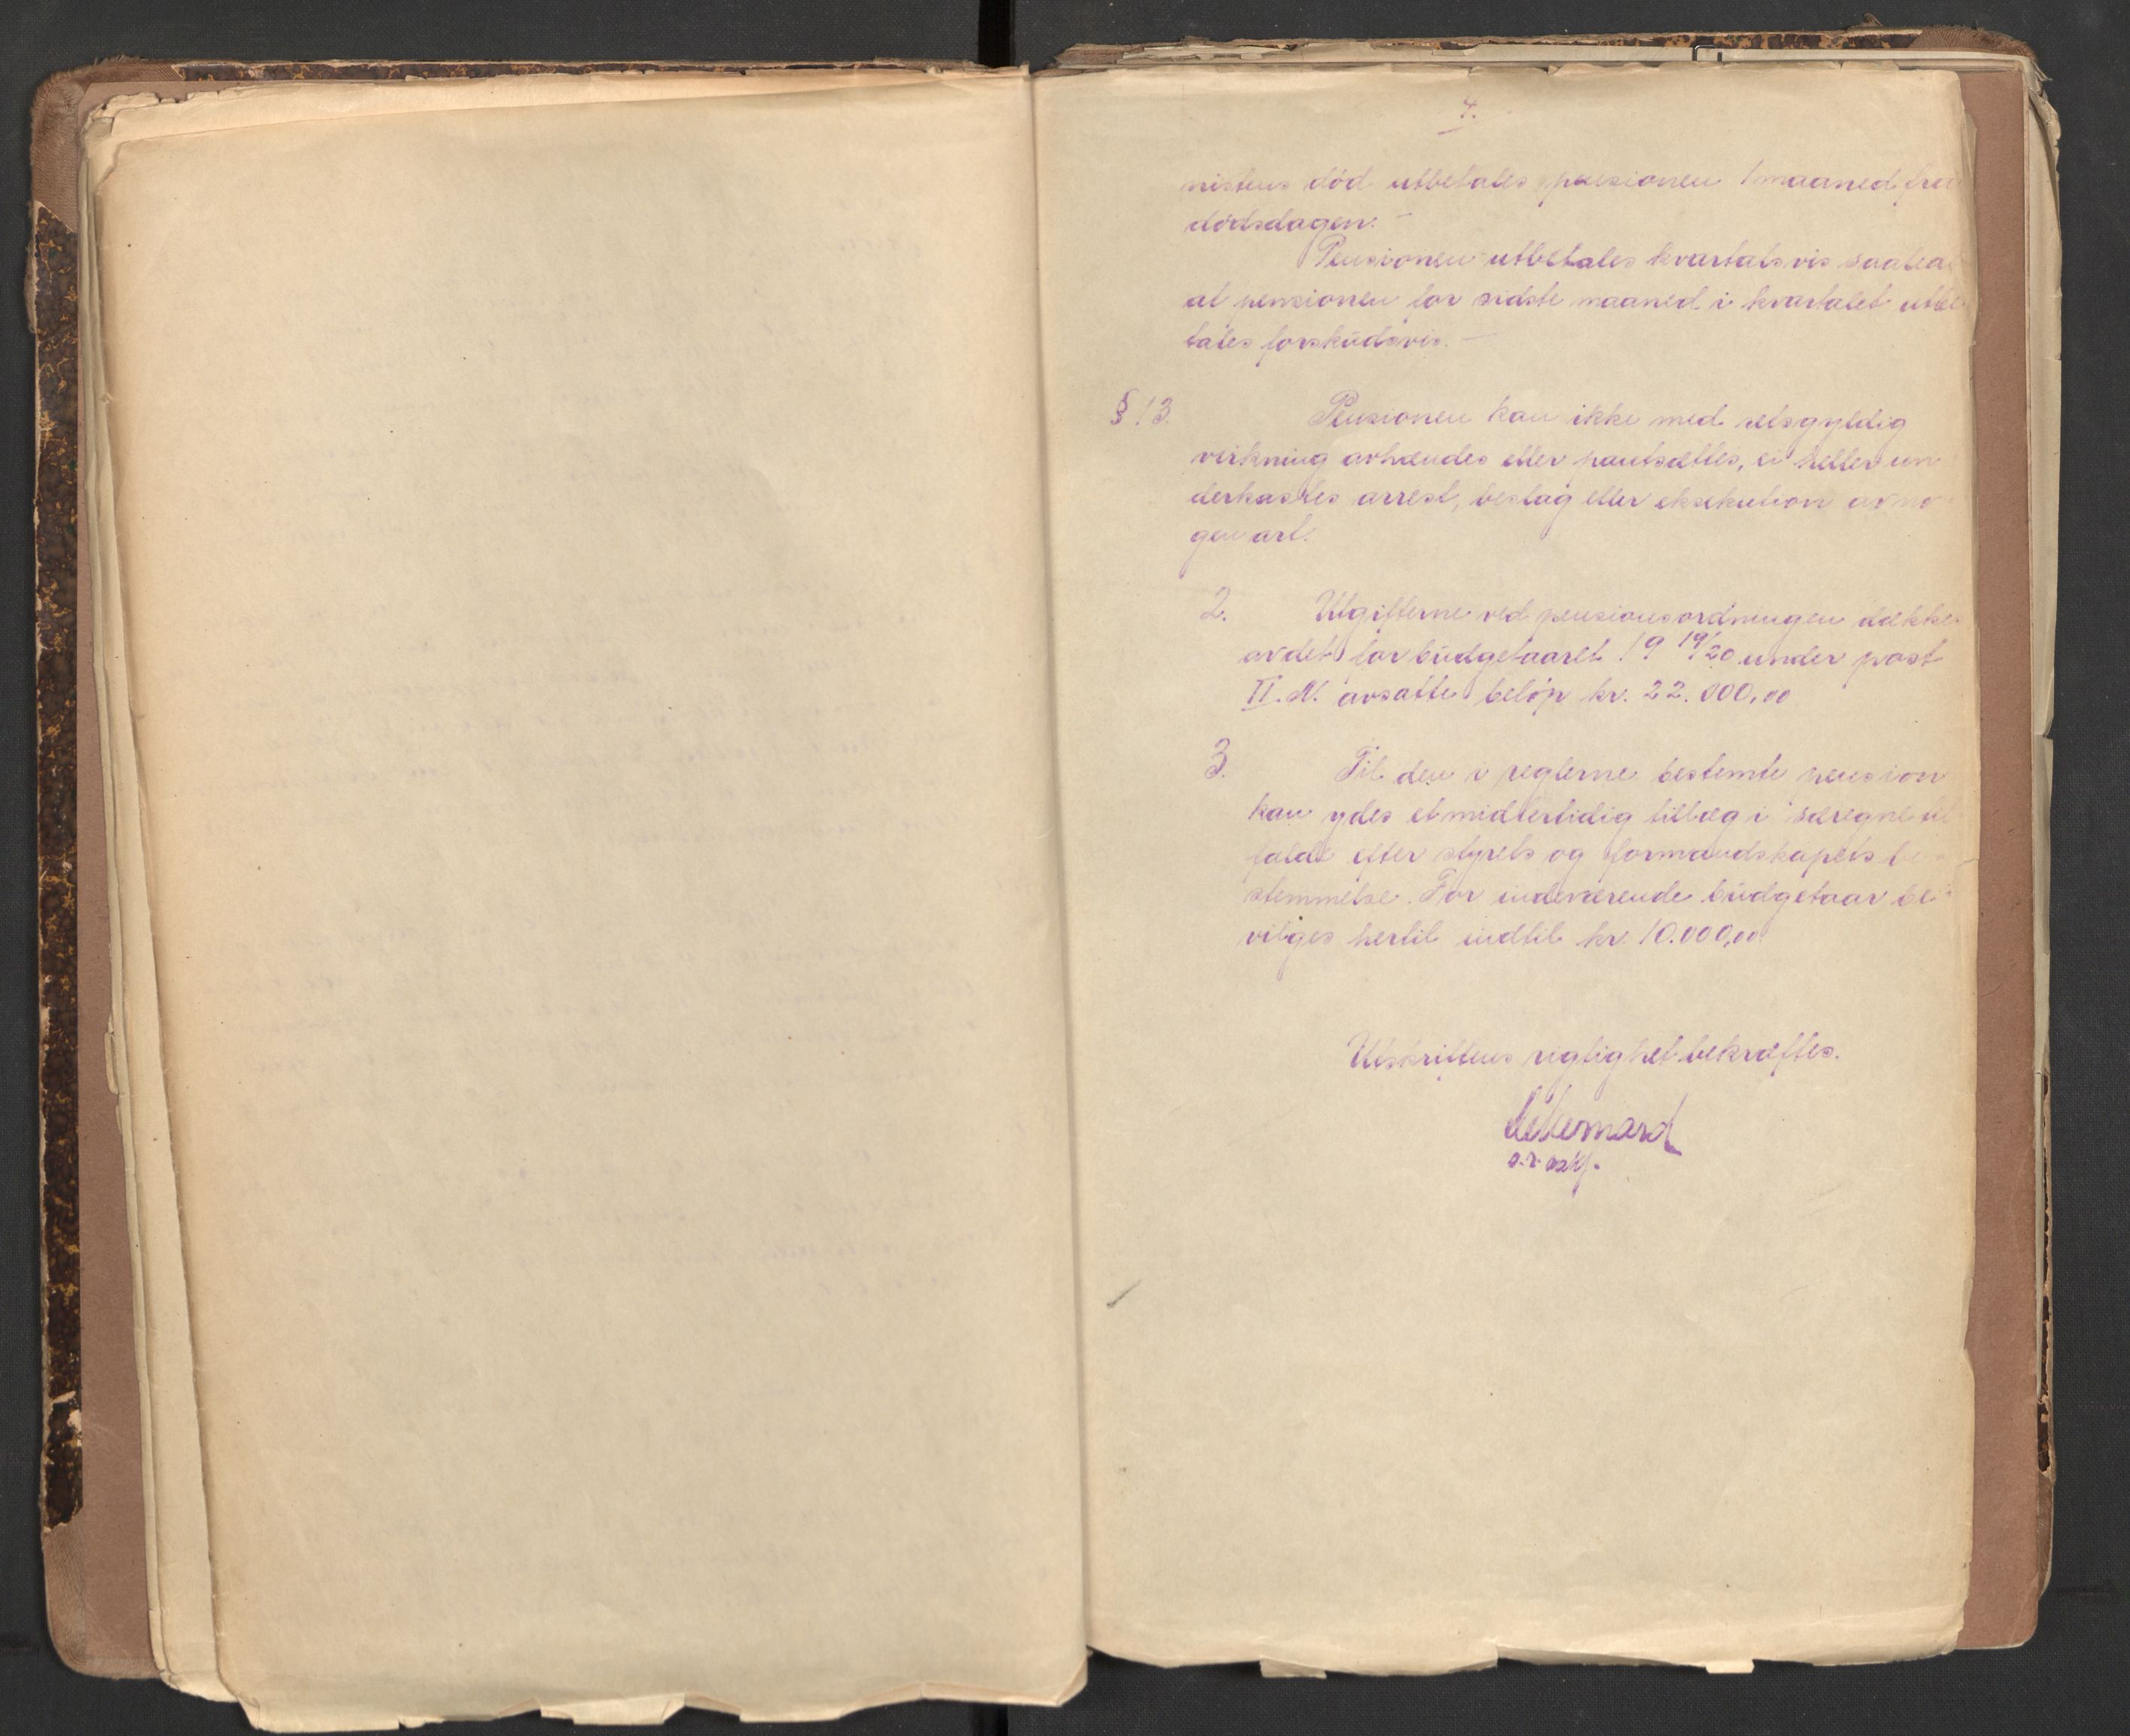 4.
nistens död utbetales pensionen 1 maaned fra
dödsdagen. —
Pensionen utbetales kvartalsvis saalea
at pensionen for sidste maaned i kvartalet utbe
tales forskudsvis. —
§ 13. Pensionen kan ikke med retsgyldig
virkning avhændes eller pantsættes, ei heller un
derkastes arrest, beslag eller eksekution av no
gen art.
2. Utgifterne ved pensionsordningen dækkes
av det for budgetaaret 19 19/20 under post
II. N. avsatte beløp kr. 22.000,00
3. Til den i reglerne bestemte pension
kan ydes et midlertidig tillæg i særegne til
fælde efter styrets og formandskapets be
stemmelse. For indeværende budgetaar be
vilges hertil indtil kr. 10.000,00
Utskriftens rigtighet bekræftes.